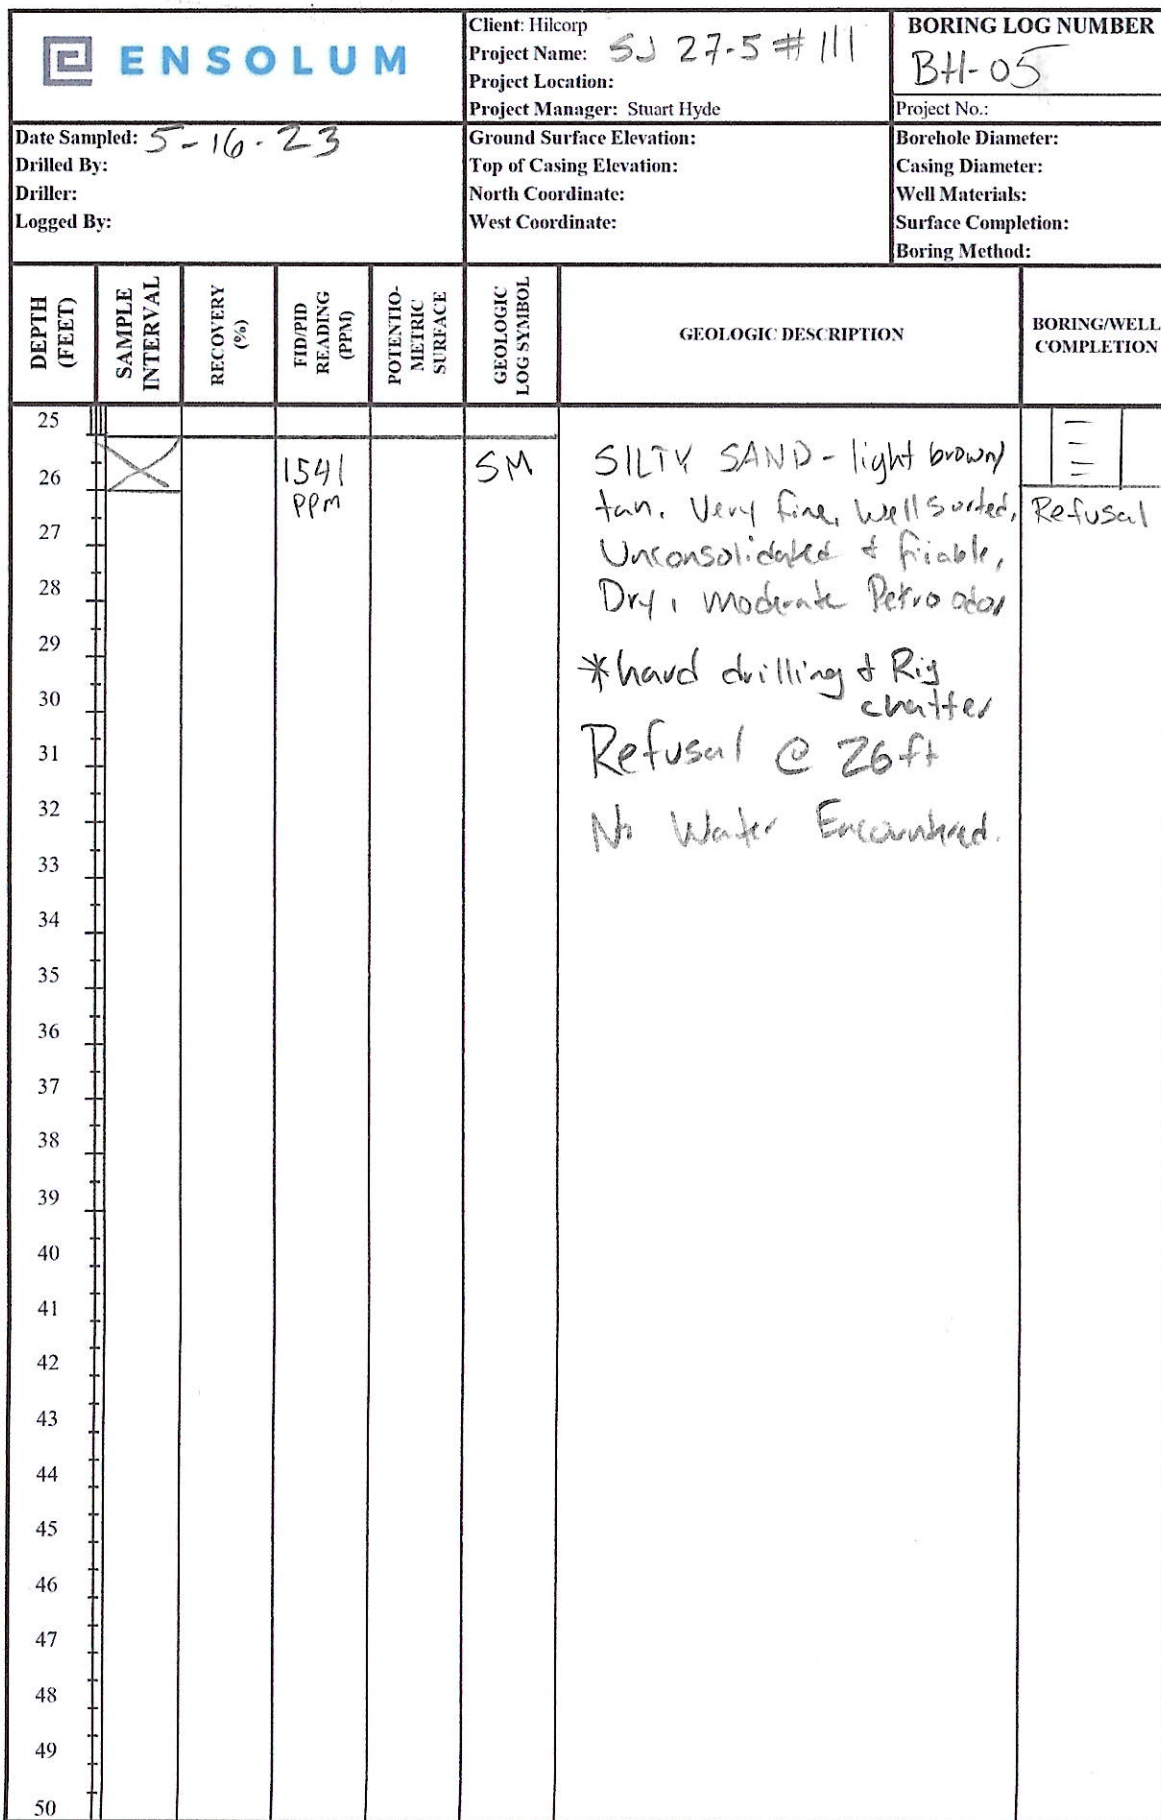 ENSOLUM
Client: Hilcorp
Project Name: SJ 27-5 #111
Project Location:
Project Manager: Stuart Hyde
BORING LOG NUMBER
BH-05
Project No.:
Date Sampled: 5-16-23
Drilled By:
Driller:
Logged By:
Ground Surface Elevation:
Top of Casing Elevation:
North Coordinate:
West Coordinate:
Borehole Diameter:
Casing Diameter:
Well Materials:
Surface Completion:
Boring Method:
DEPTH
(FEET)
SAMPLE
INTERVAL
RECOVERY
(%)
FID/PID
READING
(PPM)
POTENTIO-
METRIC
SURFACE
GEOLOGIC
LOG SYMBOL
GEOLOGIC DESCRIPTION
BORING/WELL
COMPLETION
25
26
27
28
29
30
31
32
33
34
35
36
37
38
39
40
41
42
43
44
45
46
47
48
49
50
1541
PPM
SM
SILTY SAND - light brown/
tan. Very fine, Well sorted,
Unconsolidated & friable,
Dry, moderate Petro odor
*hard drilling & Rig
chatter
Refusal @ 26ft
No Water Encountered.
Refusal